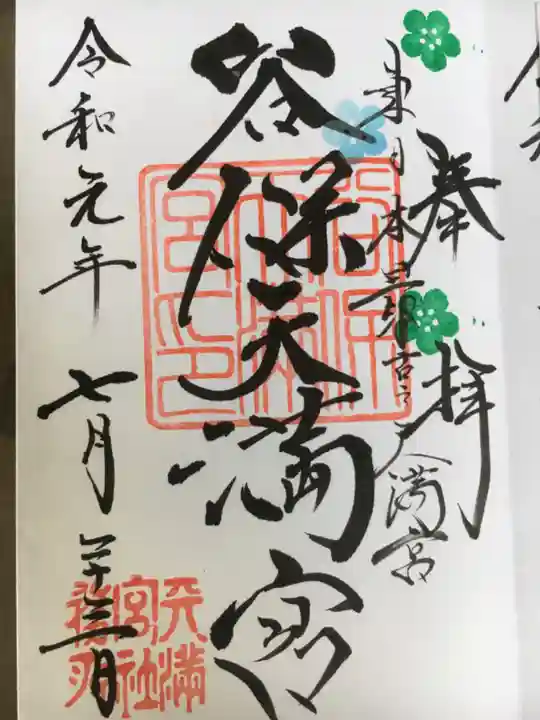 奉拝
東日本最古之天満宮
谷保天満宮
谷保天満宮印
令和元年 七月 二十三日
天満宮社務所